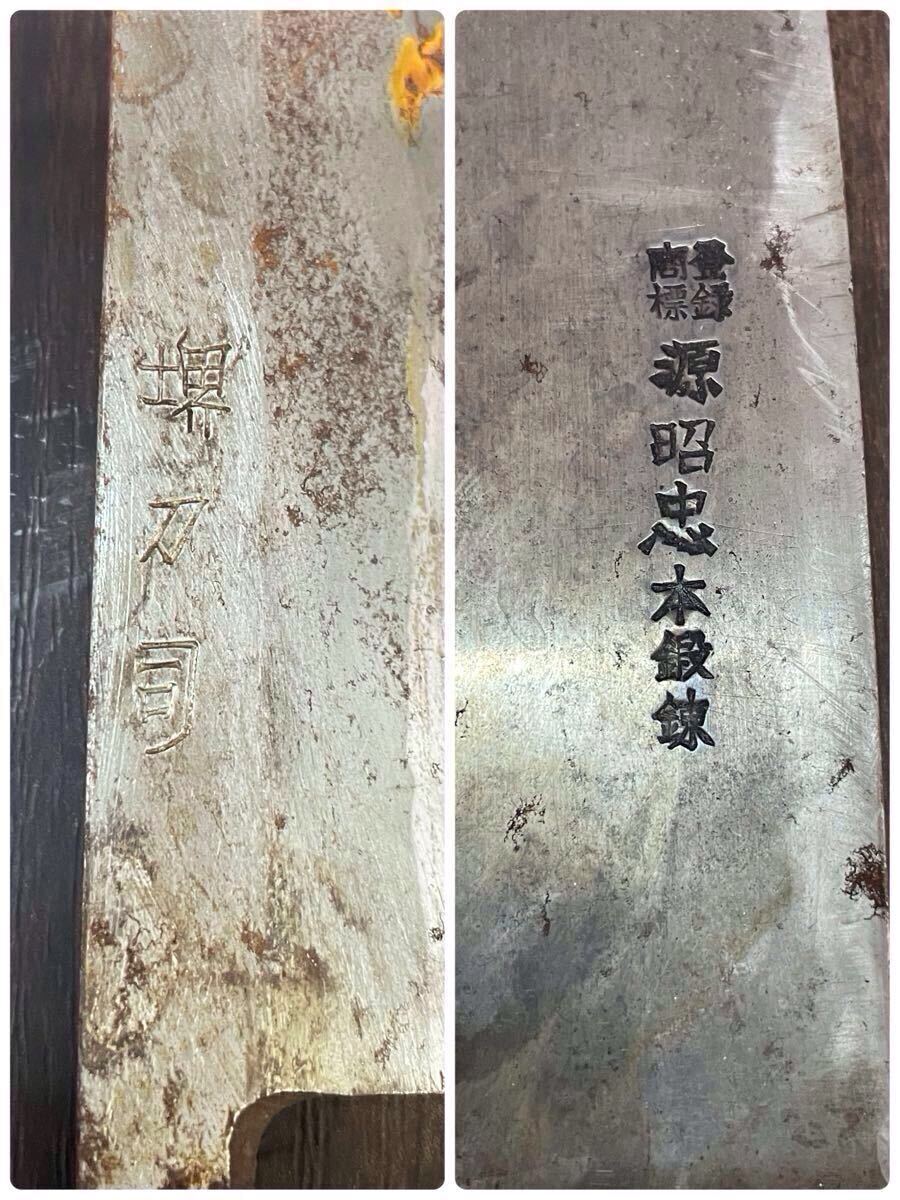 堺刀司
登録商標
源昭忠本鍛錬